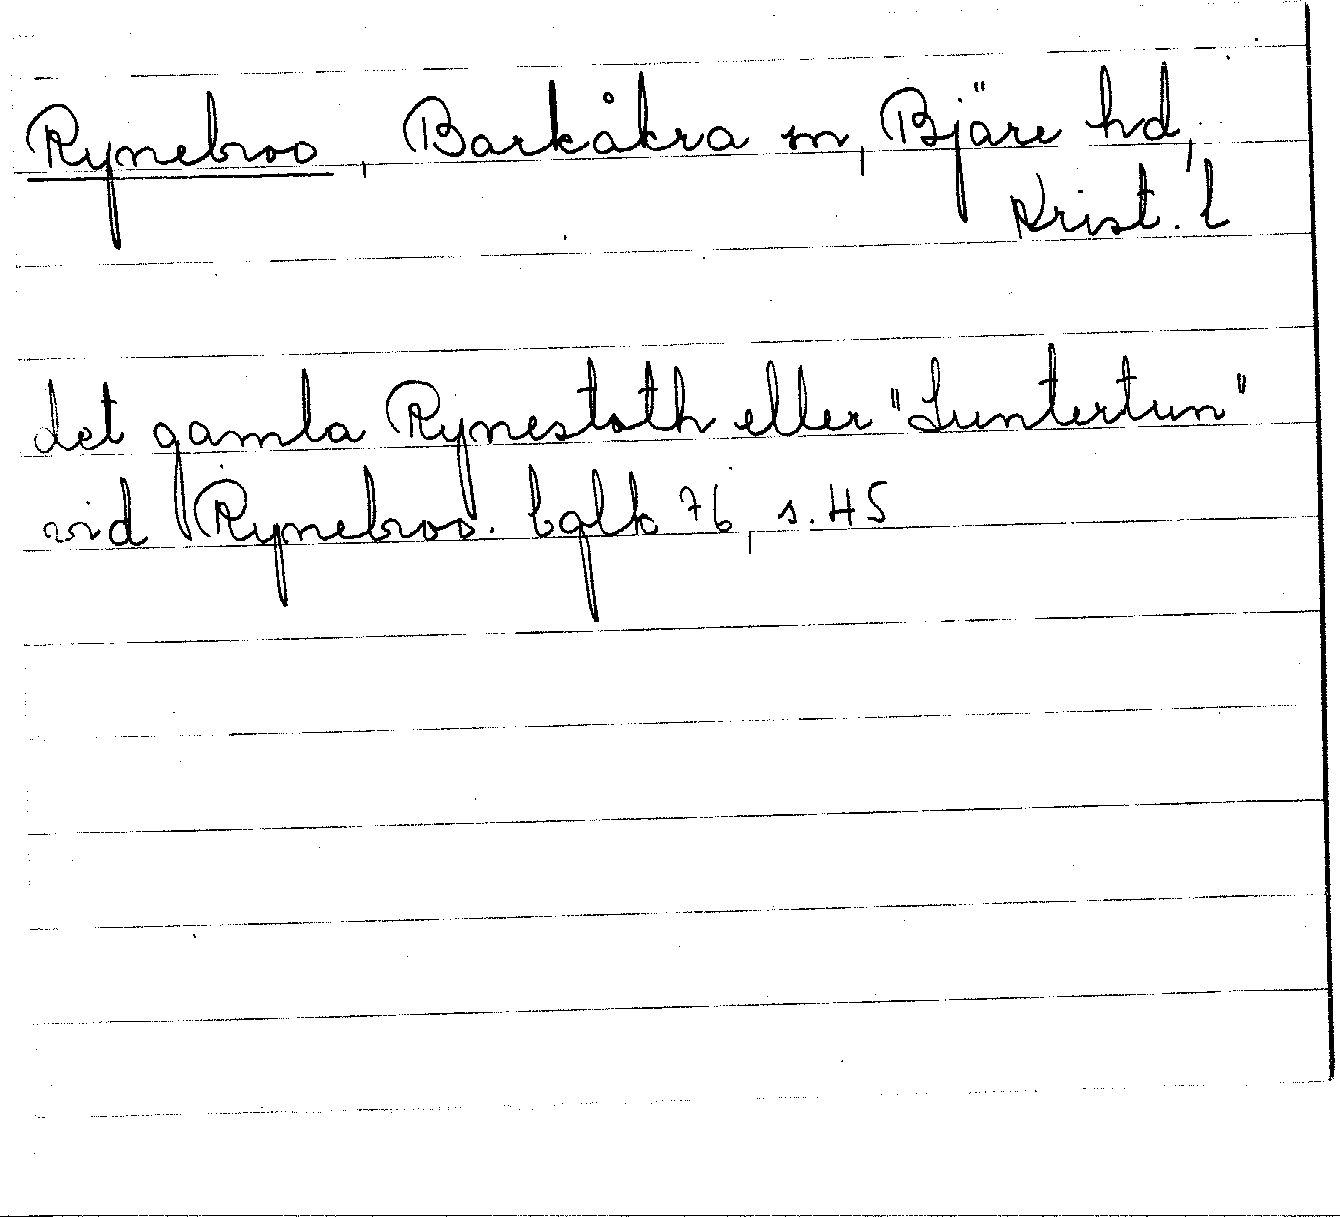 Rynebroo, Barkåkra sn, Bjäre hd,
Krist. l
det gamla Rynestoth eller "Luntertun"
vid Rynebroo. bglb 76, s. 45